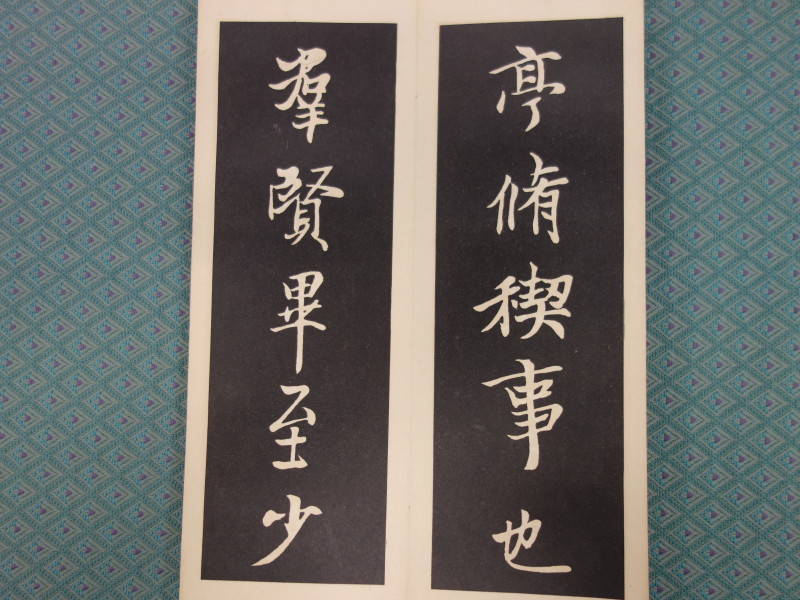 亭脩稧事也
羣賢畢至少